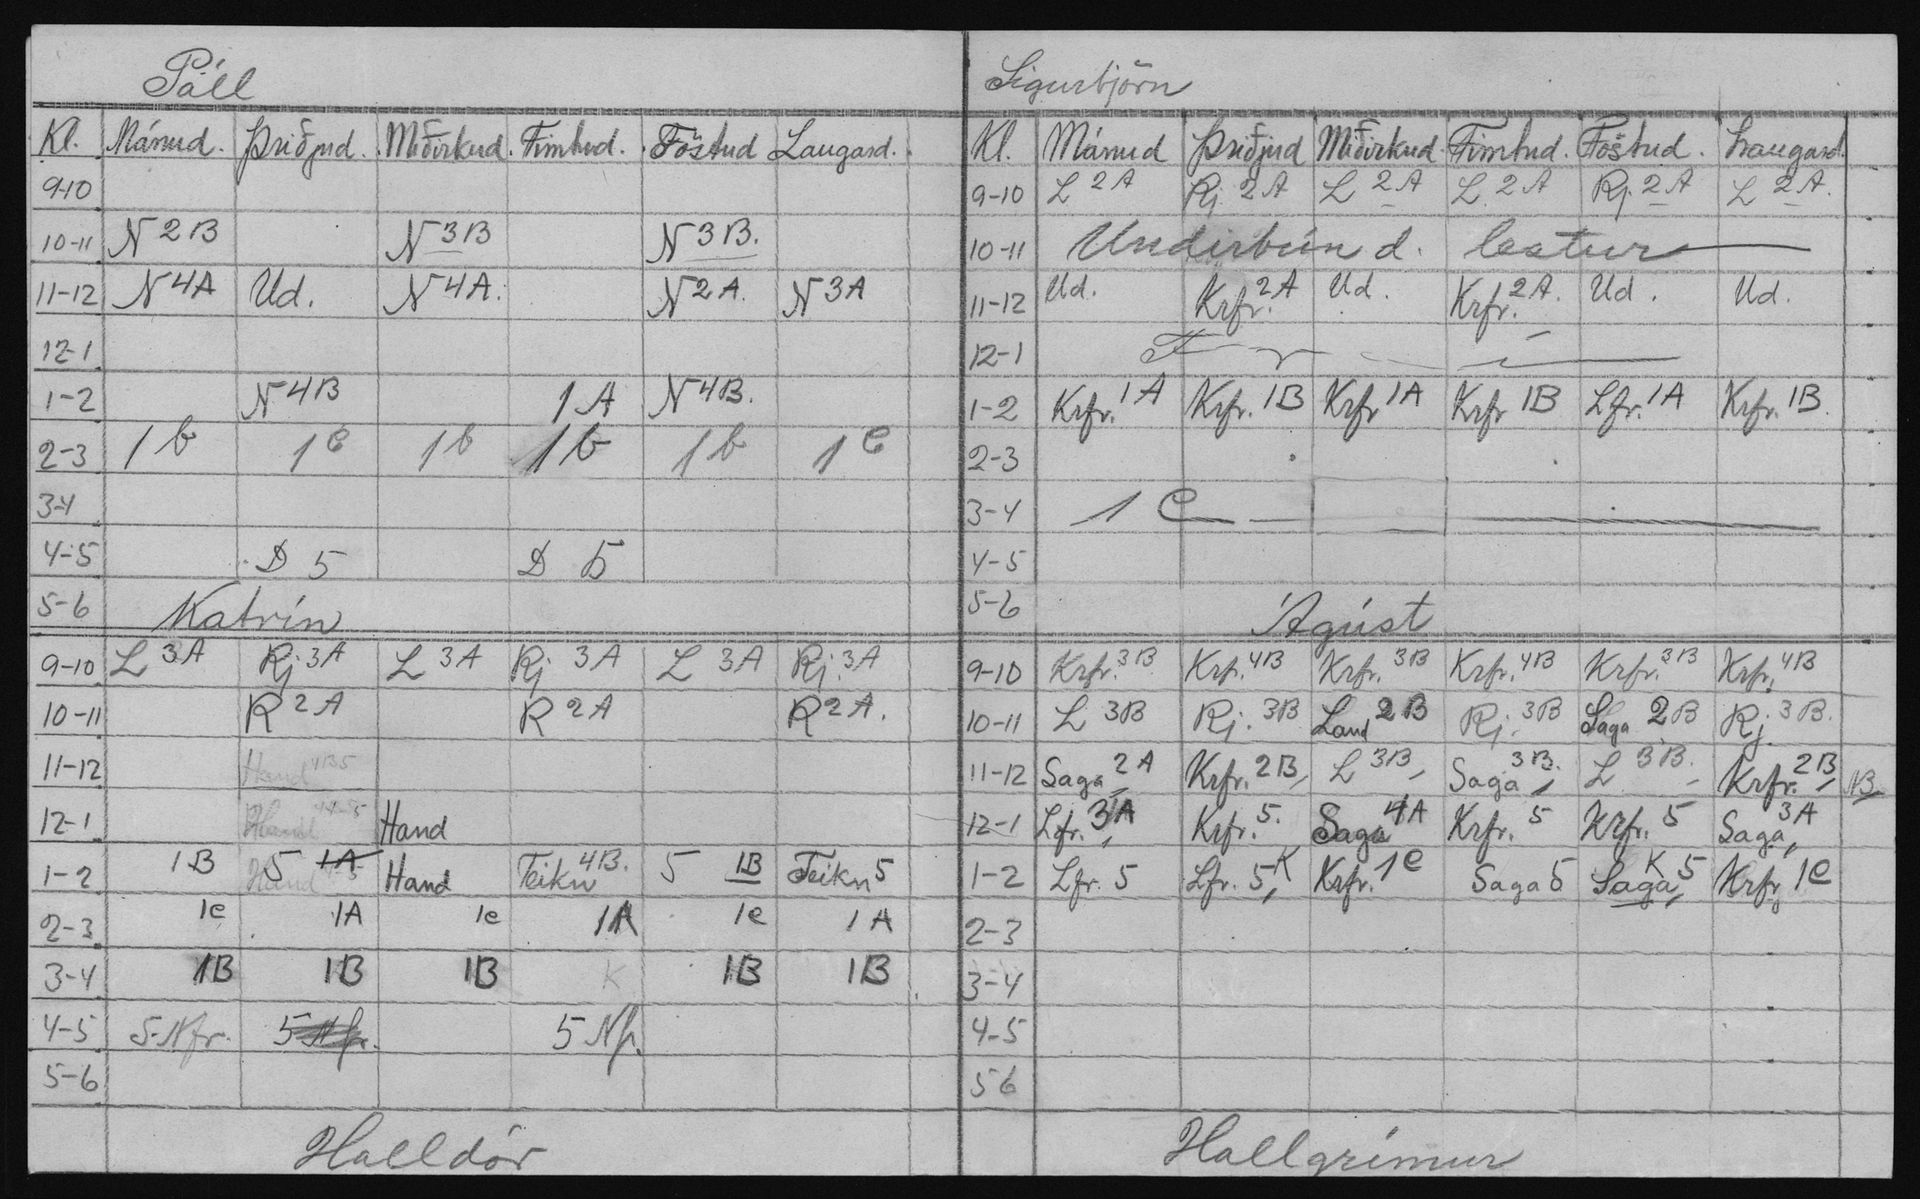 Páll
Kl. Mánud. Þriðjud. Miðvikud. Fimtud. Föstud Laugard.
9-10
10-11 N 2B N 3B N 3B.
11-12 N 4A Ud. N 4A. N 2A. N 3A
12-1
1-2 N 4B 1A N 4B.
2-3 1b 1C 1b 1b 1b 1C
3-4
4-5 D 5 D 5
5-6
Katrín
9-10 L 3A Rj 3A L 3A Rj 3A L 3A Rj. 3A
10-11 R 2A R 2A R 2A.
11-12 Hand
12-1 Hand Hand
1-2 1B 5 1A Hand Teikn 4B. 5 1B Teikn 5
2-3 1c 1A 1c 1A 1c 1A
3-4 1B 1B 1B K 1B 1B
4-5 5 Nfr. 5 Nfr. 5 Nfr.
5-6
Halldór
Sigurbjörn
Kl. Mánud Þriðjud Miðvikud. Fimtud. Föstud. Laugard.
9-10 L 2A Rj. 2A L 2A L 2A Rj. 2A L 2A.
10-11 Undirbún d. lestur
11-12 Ud. Krfr. 2A Ud. Krfr. 2A. Ud. Ud.
12-1 F r í
1-2 Krfr. 1A Krfr. 1B Krfr 1A Krfr 1B Lfr. 1A Krfr. 1B.
2-3
3-4 1 C
4-5
5-6
Ágúst
9-10 Krfr. 3B Krfr. 4B Krfr. 3B Krfr. 4B Krfr. 3B Krfr. 4B
10-11 L 3B Rj. 3B Land 2B Rj. 3B Saga 2B Rj. 3B.
11-12 Saga 2A Krfr. 2B, L 3B, Saga 3B. L 3B. Krfr. 2B, NB.
12-1 Lfr. 3A Krfr. 5. Saga 4A Krfr. 5 Krfr. 5 Saga, 3A
1-2 Lfr. 5 Lfr. 5, K Krfr. 1C Saga 5 Saga, K 5 Krfr. 1C
2-3
3-4
4-5
5 6
Hallgrímur